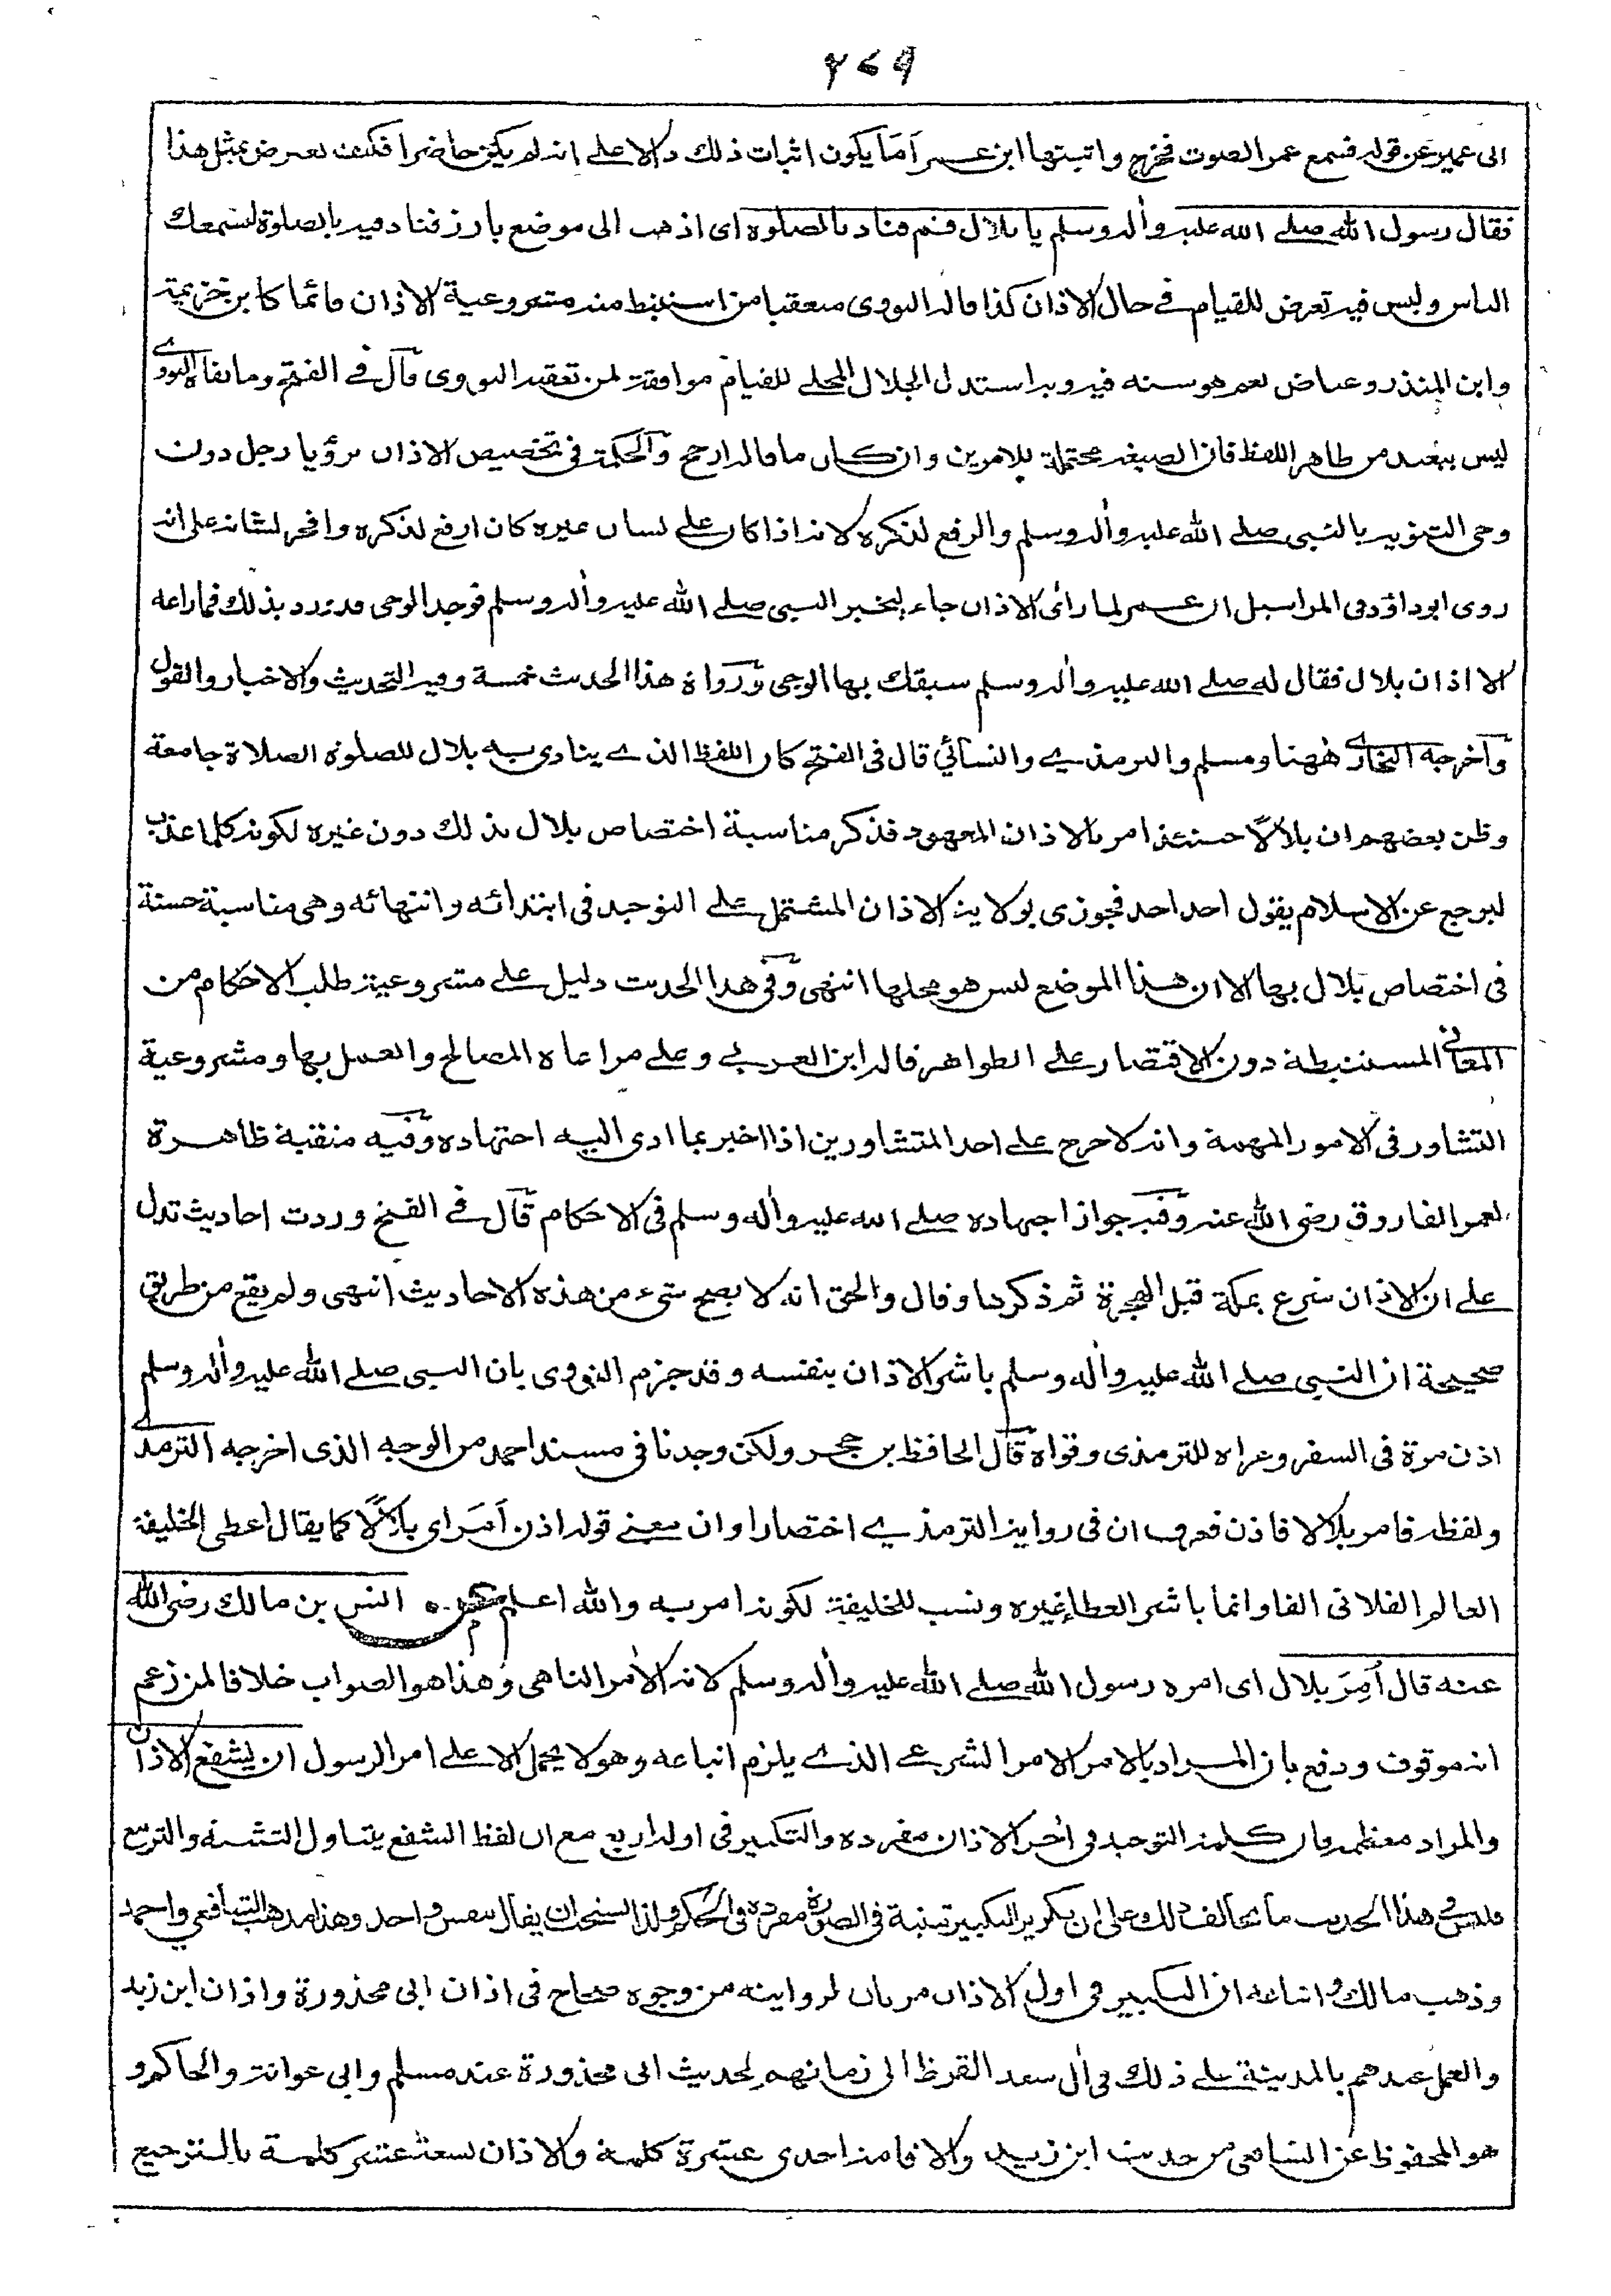 ٢٧٩
الى عمير عن قوله فسمع عمر الصوت فخرج واثبتها ابن عمر اَمَا يكون اثبات ذلك دالا على انه لم يكن حاضرا فكيف يعترض بمثل هذا
فقال رسول الله صلے الله عليه واٰله وسلم يا بلال قم فناد بالصلوة اى اذهب الى موضع بارز فناد فيه بالصلوة ليسمعك
الناس وليس فيه تعرض للقيام فے حال الاذان كذا قاله النووى متعقبا من استنبط منه مشروعية الاذان قائما كابن خزيمة
وابن المنذر وعياض نعم هو سنه فيه وبه استدل الجلال المحلے للقيام موافقة لمن تعقبه النووى قال فے الفتح وما نفاه النووے
ليس ببعيد من ظاهر اللفظ فان الصيغة محتملة للامرين وان كان ما قاله ارجح والحكمة فى تخصيص الاذان برؤيا رجل دون
وحى التنويه بالنبى صلے الله عليه واٰله وسلم والرفع لذكره لانه اذا كان علے لسان غيره كان ارفع لذكره وافخر لشانه على انه
روى ابو داؤد فى المراسيل ان عمر لما راٰى الاذان جاء ليخبر النبى صلے الله عليه واٰله وسلم فوجد الوحى قد ورد بذلك فما راعه
الا اذان بلال فقال له صلے الله عليه واٰله وسلم سبقك بها الوحى ورواة هذا الحديث خمسة وفيه التحديث والاخبار والقول
واخرجه البخارے ههنا ومسلم والترمذے والنسائي قال فى الفتح كان اللفظ الذے ينادى به بلال للصلوة الصلاة جامعة
وظن بعضهم ان بلالًا حينئذ امر بالاذان المعهود فذكر مناسبة اختصاص بلال بذلك دون غيره لكونه كلما عذب
ليرجع عن الاسلام يقول احد احد فجوزى بولاية الاذان المشتمل علے التوحيد فى ابتدائه وانتهائه وهى مناسبة حسنة
فى اختصاص بلال بها الا ان هذا الموضع ليس هو محلها انتهى وفى هذا الحديث دليل علے مشروعية طلب الاحكام من
المعانى المستنبطة دون الاقتصار علے الظواهر قاله ابن العربے وعلے مراعاة المصالح والعمل بها ومشروعية
التشاور فى الامور المهمة وانه لا حرج علے احد المتشاورين اذا اخبر بما ادى اليه اجتهاده وفيه منقبة ظاهرة
لعمر الفاروق رضى الله عنه وفيه جواز اجتهاده صلے الله عليه واٰله وسلم فى الاحكام قال فے الفتح وردت احاديث تدل
علے ان الاذان شرع بمكة قبل الهجرة ثم ذكرها وقال والحق انه لا يصح شىء من هذه الاحاديث انتهى ولم يقع من طريق
صحيحة ان النبى صلے الله عليه واٰله وسلم باشر الاذان بنفسه وقد جزم النووى بان النبى صلے الله عليه واٰله وسلم
اذن مرة فى السفر وعزاه للترمذى وقواه قال الحافظ بن حجر ولكن وجدنا فى مسند احمد من الوجه الذى اخرجه الترمذے
ولفظه فامر بلالا فاذن فعرف ان فى رواية الترمذے اختصارا وان معنے قوله اذن اَمَرَ اى بلالًا كما يقال اعطى الخليفة
العالم الفلانى الفا وانما باشر العطاء غيره ونسب للخليفة لكونه امر به والله اعلم انس بن مالك رضى الله
عنه قال اُمِرَ بلال اى امره رسول الله صلے الله عليه واٰله وسلم لانه الاٰمر الناهى وهذا هو الصواب خلافا لمن زعم
انه موقوف ودفع بان المراد بالامر الامر الشرعے الذے يلزم اتباعه وهو لا يحمل الا علے امر الرسول ان يشفع الاذان
والمراد معظمه فان كلمة التوحيد فى اٰخر الاذان مفردة والتكبير فى اوله اربع مع ان لفظ الشفع يتناول التثنية والتربيع
فليس فے هذا الحديث ما يخالف ذلك وعلى ان تكرير التكبير تثنية فى الصورة مفردة فى الحكم ولذا استحب ان يقال بنفس واحد وهذا مذهب الشافعي واحمد
وذهب مالك واتباعه ان التكبير فى اول الاذان مرتان لروايته من وجوه صحاح فى اذان ابى محذورة واذان ابن زيد
والعمل عندهم بالمدينة علے ذلك فى اٰل سعد القرظ الى زمانهم لحديث ابى محذورة عند مسلم وابى عوانة والحاكم و
هو المحفوظ عن الشافعى من حديث ابن زيد والاقامة احدى عشرة كلمة والاذان تسعة عشر كلمة بالترجيع